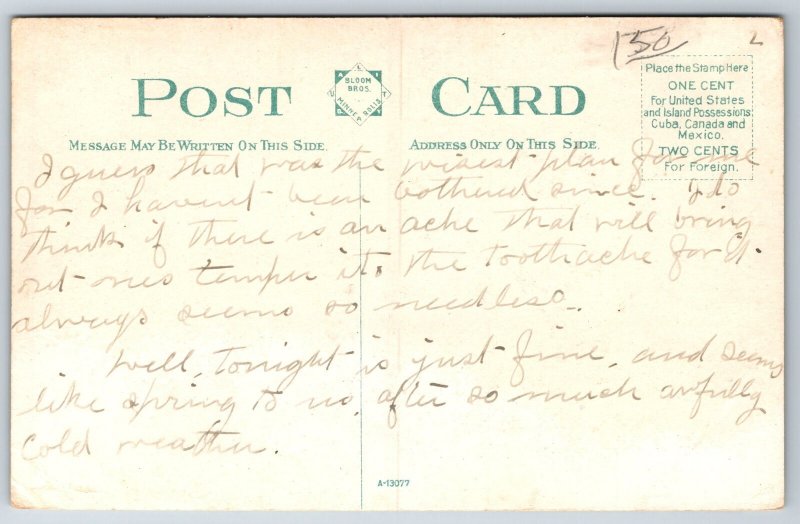 150
L
POST CARD
BLOOM BROS. MINNEAPOLIS
Place the Stamp Here
ONE CENT
For United States
and Island Possessions
Cuba, Canada and
Mexico.
TWO CENTS
For Foreign.
MESSAGE MAY BE WRITTEN ON THIS SIDE.
ADDRESS ONLY ON THIS SIDE.
I guess that was the wisest plan for me
for I havent been bothered since. I do
think if there is an ache that will bring
out ones temper its the toothache for it
always seems so needless.
Well, tonight is just fine, and seems
like spring to us, after so much awfully
cold weather.
A-13077